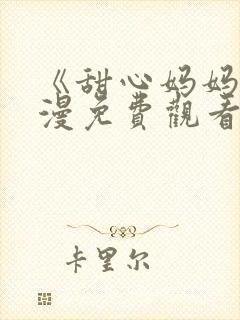 《甜心妈妈
漫免費觀看
卡里尔